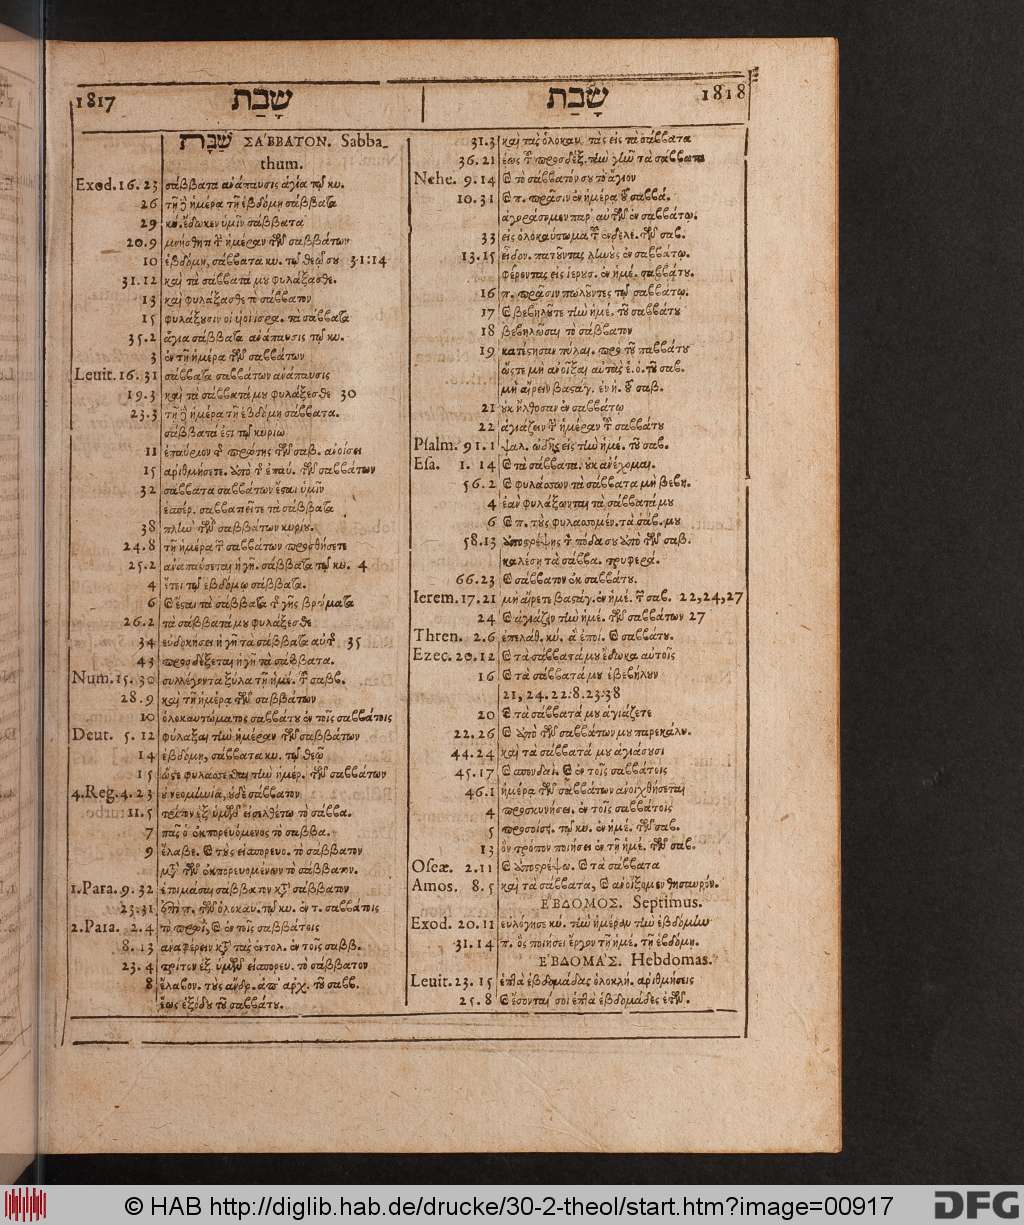 1817 שָׁבַת
שַׁבָּת ΣΑΒΒΑΤΟΝ. Sabba-
thum.
Exod. 16. 23 σάββατα ἀνάπαυσις ἁγία τῷ κυ.
26 τῇ ἡμέρᾳ τῇ ἑβδόμῃ σάββατα
29 κύ. ἔδωκεν ὑμῖν σάββατα
20. 9 ἡμέραν τῶν σαββάτων
10 ἑβδόμῃ, σάββατα κυ. τῷ θεῷ σου 31:14
31. 12 καὶ τὰ σάββατά μου φυλάξασθε.
13 καὶ φυλάξασθε τὸ σάββατον
15 φυλάξουσιν οἱ υἱοὶ ισρα. τὰ σάββατα
35. 2 ἅγια σάββατα ἀνάπαυσις τῷ κυ.
3 ἐν τῇ ἡμέρᾳ τῶν σαββάτων
Leuit. 16. 31 σάββατα σαββάτων ἀνάπαυσις
19. 3 καὶ τὰ σάββατά μου φυλάξεσθε 30
23. 3 τῇ ἡμέρᾳ τῇ ἑβδόμῃ σάββατα.
σάββατά ἐστι τῷ κυρίῳ
11 ἐπαύριον τῆς πρώτης τῶν σαβ. ἀνοίσει
15 ἀριθμήσετε. ἀπὸ τῆς ἐπαύ. τῶν σαββάτων
32 σάββατα σαββάτων ἔσται ὑμῖν
ἑσπέρ. σαββατιεῖτε τὰ σάββατα
38 πλὴν τῶν σαββάτων κυρίου.
24. 8 τῇ ἡμέρᾳ τῶν σαββάτων προσθήσετε
25. 2 ἀναπαύσεται ἡ γῆ. σάββατα τῷ κυ. 4
4 ἔτει τῷ ἑβδόμῳ σάββατα.
6 καὶ ἔσται τὰ σάββατα τῆς γῆς βρώματα
26. 2 τὰ σάββατά μου φυλάξεσθε
34 εὐδοκήσει ἡ γῆ τὰ σάββατα αὐτῆς 35
43 προσδέξεται ἡ γῆ τὰ σάββατα.
Num. 15. 30 συλλέγοντα ξύλα τῇ ἡμέ. τῶν σαββ.
28. 9 καὶ τῇ ἡμέρᾳ τῶν σαββάτων
10 ὁλοκαυτώματος σαββάτου ἐν τοῖς σαββάτοις
Deut. 5. 12 φύλαξαι τὴν ἡμέραν τῶν σαββάτων
14 ἑβδόμῃ, σάββατα κυ. τῷ θεῷ
15 ὥστε φυλάσσεσθαι τὴν ἡμέρ. τῶν σαββάτων
4. Reg. 4. 23 οὐ νεομηνία, οὐδὲ σάββατον
11. 5 τρίτον ἐξ ὑμῶν εἰσελθέτω τὸ σάββα.
7 πᾶς ὁ ἐκπορευόμενος τὸ σάββα.
9 ἔλαβε. καὶ τοὺς εἰσπορευο. τὸ σάββατον
μετὰ τῶν ἐκπορευομένων τὸ σάββατον.
1. Para. 9. 32 ἑτοιμάσαι σάββατον κατὰ σάββατον
23. 31 ἐπὶ π. τῶν ὁλοκαυ. τῷ κυ. ἐν τ. σαββάτοις
2. Para. 2. 4 τὸ πρωῒ, καὶ ἐν τοῖς σαββάτοις
8. 13 ἀναφέρειν κατὰ τὰς ἐντολ. ἐν τοῖς σαββ.
23. 4 τρίτον ἐξ. ὑμῶν εἰσπορευ. τὸ σάββατον
8 ἔλαβον. τοὺς ἄνδρ. ἀπ' ἀρχ. τοῦ σαββ.
ἕως ἐξόδου τοῦ σαββάτου.
שָׁבַת 1818
31. 3 καὶ τὰς ὁλοκαυ. τὰς εἰς τὰ σάββατα
36. 21 ἕως τοῦ προσδέξ. τὴν γῆν τὰ σάββατα
Nehe. 9. 14 καὶ τὸ σάββατόν σου τὸ ἅγιον
10. 31 καὶ π. πρᾶσιν ἐν ἡμέρᾳ τοῦ σαββά.
ἀγοράσομεν παρ' αὐτῶν ἐν σαββάτῳ.
33 εἰς ὁλοκαύτωμα τοῦ ἐνδελε. τῶν σαβ.
13. 15 εἶδον. πατοῦντας ληνοὺς ἐν σαββάτῳ.
φέροντας εἰς ἱερουσ. ἐν ἡμέ. σαββάτου.
16 π. πρᾶσιν πωλοῦντες τῷ σαββάτῳ.
17 καὶ βεβηλοῦτε τὴν ἡμέ. τοῦ σαββάτου
18 βεβηλῶσαι τὸ σάββατον
19 κατέστησαν πύλαι. πρὸ τοῦ σαββάτου
ὥστε μὴ ἀνοῖξαι αὐτὰς ἑ. ὀ. τοῦ σαβ.
μὴ αἴρειν βαστάγ. ἐν ἡ. τοῦ σαβ.
21 οὐκ ἤλθοσαν ἐν σαββάτῳ
22 ἁγιάζειν τὴν ἡμέραν τοῦ σαββάτου
Psalm. 91. 1 ψαλ. ᾠδῆς εἰς τὴν ἡμέ. τοῦ σαβ.
Esa. 1. 14 καὶ τὰ σάββατα. οὐκ ἀνέχομαι.
56. 2 καὶ φυλάσσων τὰ σάββατα μὴ βεβη.
4 ἐὰν φυλάξωνται τὰ σάββατά μου
6 καὶ π. τοὺς φυλασσομέν. τὰ σάβ. μου
58. 13 ἀποστρέψῃς τὸν πόδα σου ἀπὸ τῶν σαβ.
καλέσῃ τὰ σάββα. τρυφερά.
66. 23 καὶ σάββατον ἐκ σαββάτου.
Ierem. 17. 21 μὴ αἴρετε βαστάγ. ἐν ἡμέ. τῶν σαβ. 22, 24, 27
24 καὶ ἁγιάζειν τὴν ἡμέ. τῶν σαββάτων 27
Thren. 2. 6 ἐπελάθ. κύ. ἃ ἐποί. καὶ σαββάτου.
Ezec. 20. 12 καὶ τὰ σάββατά μου ἔδωκα αὐτοῖς
16 καὶ τὰ σάββατά μου ἐβεβήλουν
21, 24. 22:8. 23:38
20 καὶ τὰ σάββατά μου ἁγιάζετε
22. 26 καὶ ἀπὸ τῶν σαββάτων μου παρεκάλυ.
44. 24 καὶ τὰ σάββατά μου ἁγιάσουσι
45. 17 καὶ σπονδαὶ. καὶ ἐν τοῖς σαββάτοις
46. 1 ἡμέρᾳ τῶν σαββάτων ἀνοιχθήσεται
4 προσκυνήσει. ἐν τοῖς σαββάτοις
5 προσοίσει. τῷ κυ. ἐν ἡμέ. τῶν σαβ.
13 ὃν τρόπον ποιήσει ἐν τῇ ἡμέ. τῶν σαβ.
Oseæ. 2. 11 καὶ ἀποστρέψω. καὶ τὰ σάββατα
Amos. 8. 5 καὶ τὰ σάββατα, καὶ ἀνοίξομεν θησαυρόν.
ἙΒΔΟΜΟΣ. Septimus.
Exod. 20. 11 εὐλόγησε κύ. τὴν ἡμέραν τὴν ἑβδόμην
31. 14 π. ὃς ποιήσει ἔργον τῇ ἡμέ. τῇ ἑβδόμῃ.
ἙΒΔΟΜΑΣ. Hebdomas.
Leuit. 23. 15 ἑπτὰ ἑβδομάδας ὁλοκλή. ἀριθμήσεις
25. 8 καὶ ἔσονταί σοι ἑπτὰ ἑβδομάδες ἐτῶν.
© HAB http://diglib.hab.de/drucke/30-2-theol/start.htm?image=00917
DFG